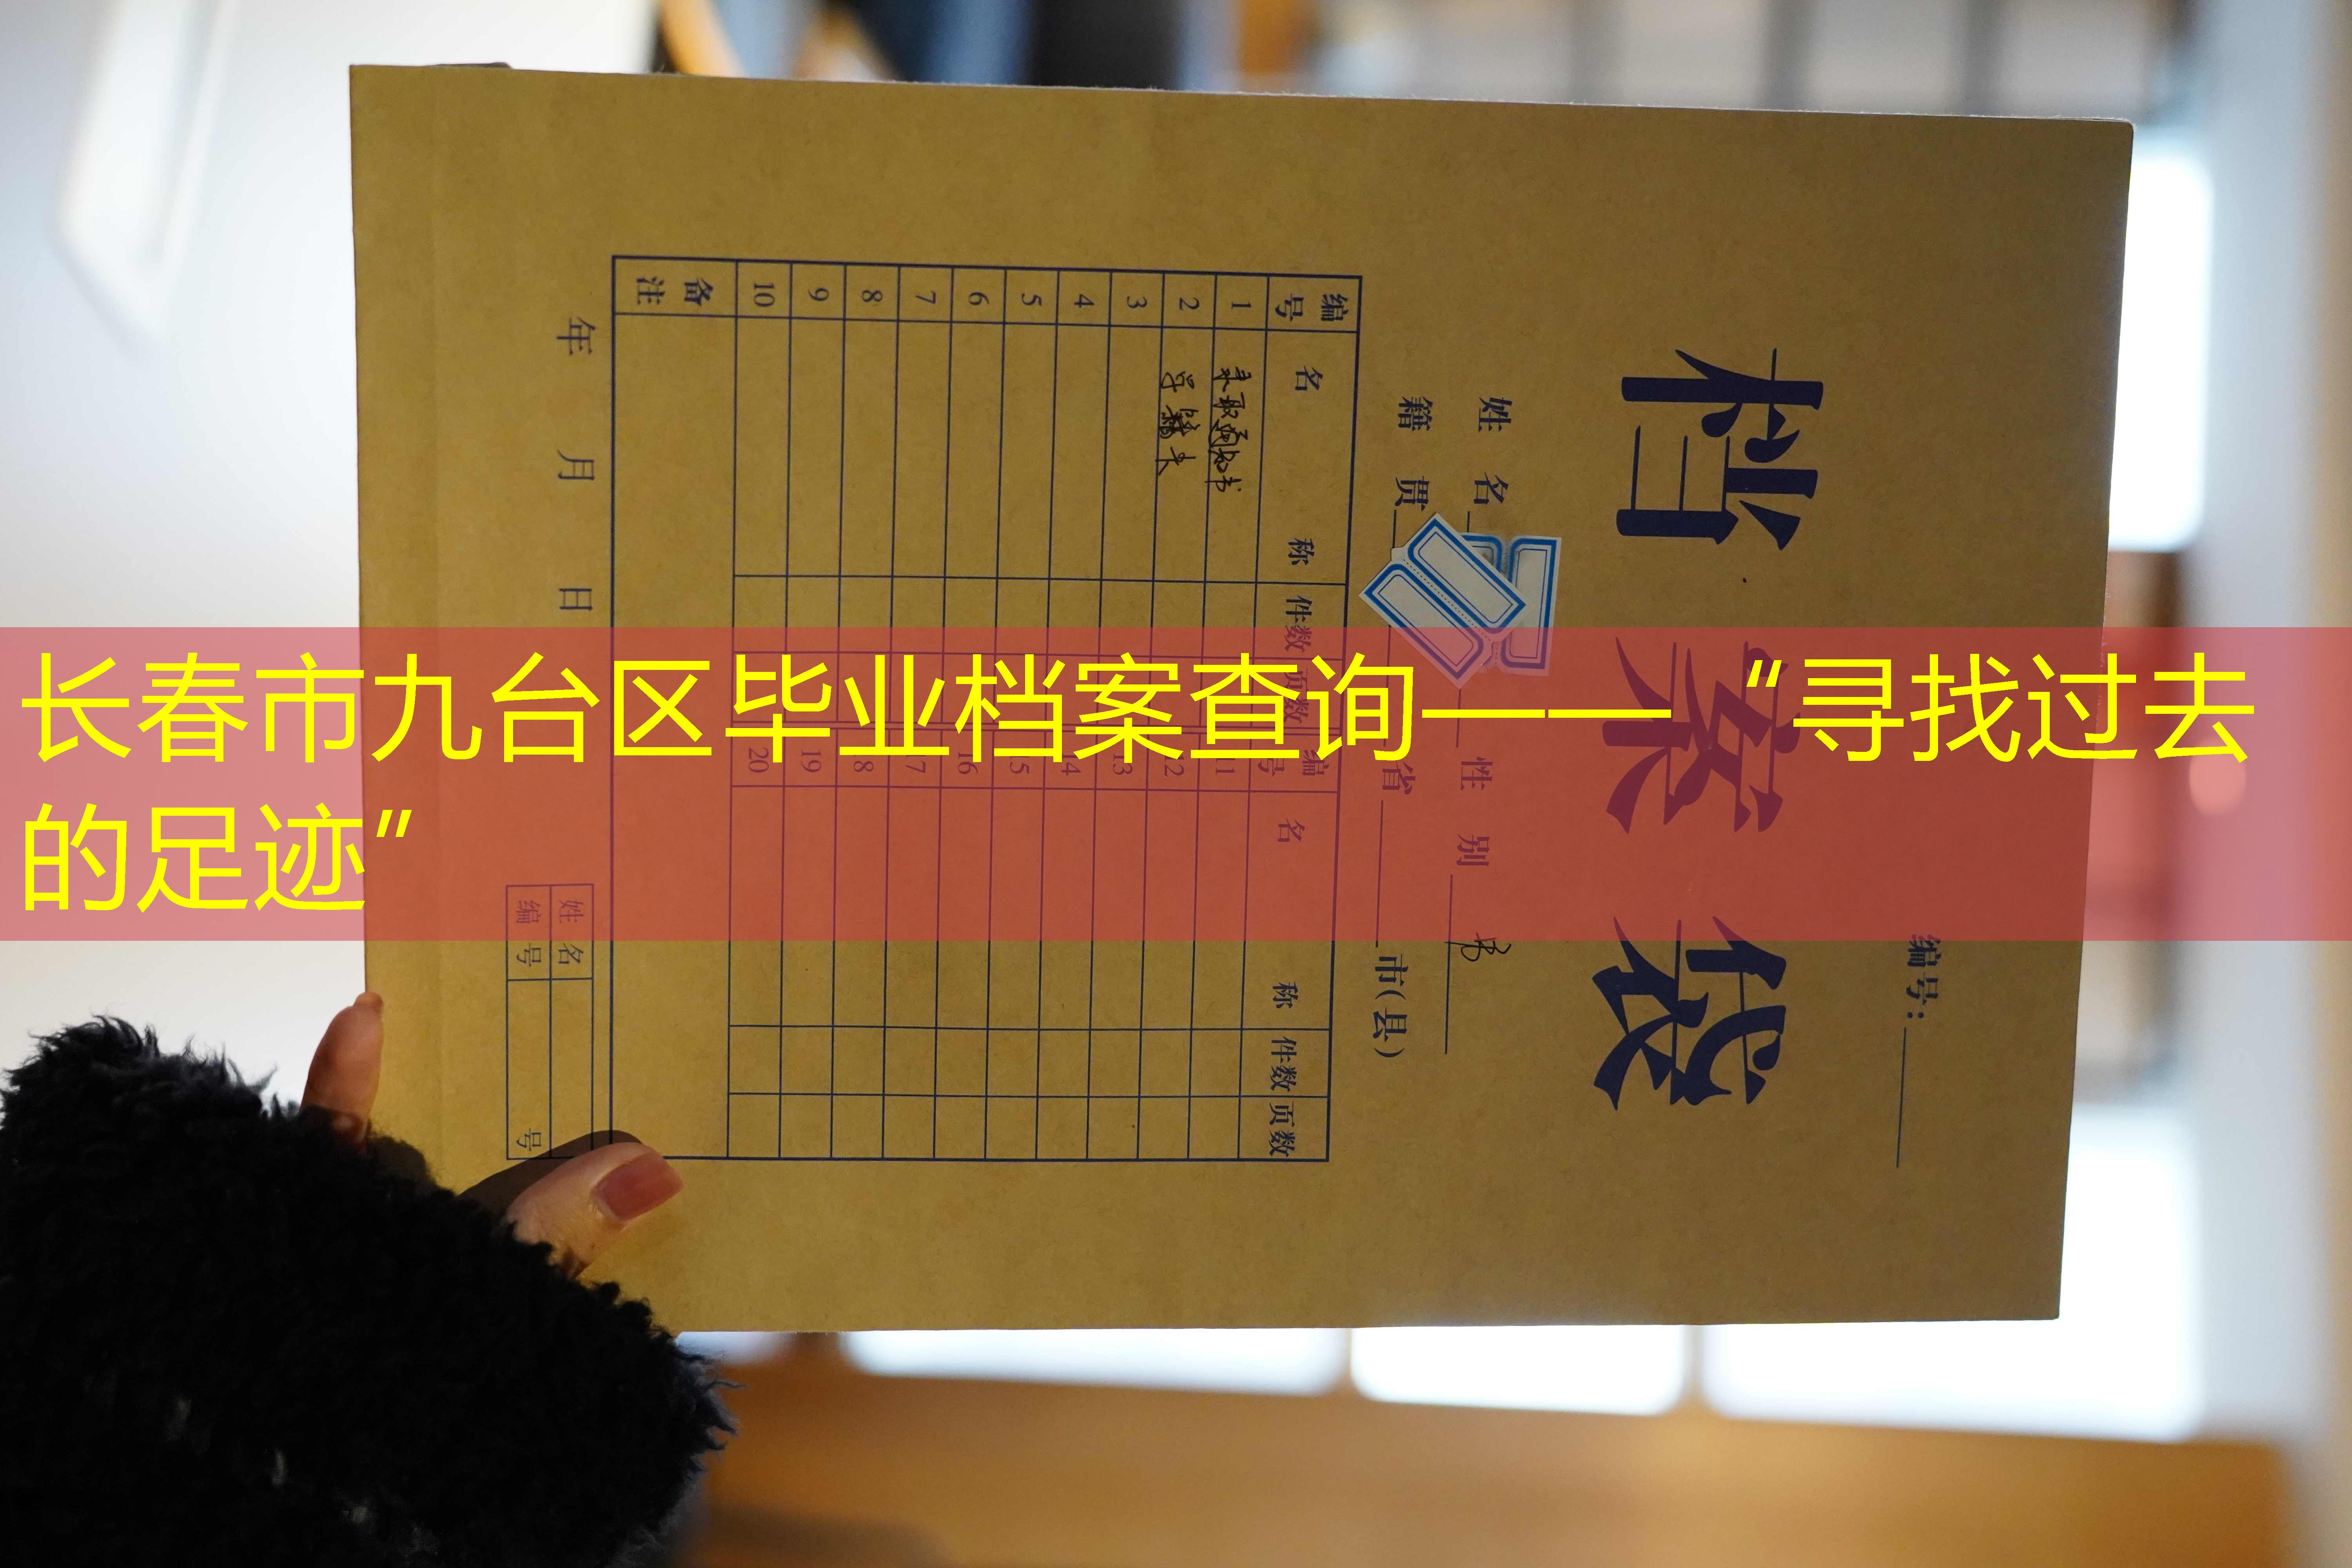 长春市九台区毕业档案查询——“寻找过去
的足迹”
编号:
档案袋
姓名 性别
籍贯 省 市(县)
编号 名称 件数 页数 编号 名称 件数 页数
1 录取通知书 11
2 学籍卡 12
3 13
4 14
5 15
6 16
7 17
8 18
9 19
10 20
备注
年 月 日
姓名
编号 号